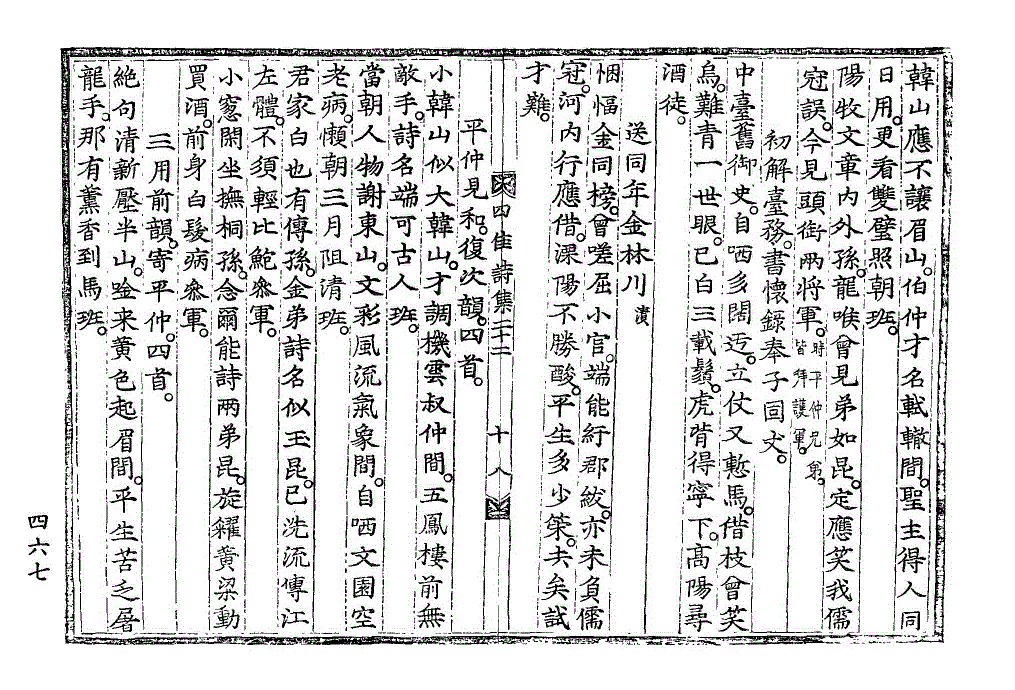 韓山應不讓眉山。伯仲才名軾轍間。聖主得人同
日用。更看雙璧照朝班。
陽牧文章內外孫。龍喉曾見弟如昆。定應笑我儒
冠誤。今見頭銜兩將軍。時平仲兄弟。皆拜護軍。
初解臺務。書懷錄奉子固丈。
中臺舊御史。自哂多闊迃。立仗又慙馬。借枝曾笑
烏。難青一世眼。已白三載鬚。虎背得寧下。高陽尋
酒徒。
送同年金林川 漬
悃愊金同榜。曾嗟屈小官。端能紆郡紱。亦未負儒
冠。河內行應借。溧陽不勝酸。平生多少榮。夫矣試
才難。
四佳詩集 十八
平仲見和。復次韻。四首。
小韓山似大韓山。才調機雲叔仲間。五鳳樓前無
敵手。詩名端可古人班。
當朝人物謝東山。文彩風流氣象間。自哂文園空
老病。懶朝三月阻清班。
君家白也有傳孫。金弟詩名似玉昆。已洗流傳江
左體。不須輕比鮑參軍。
小窓閑坐撫桐孫。念爾能詩兩弟昆。旋糴黃粱動
買酒。前身白髮病參軍。
三用前韻。寄平仲。四首。
絶句清新壓半山。唫来黄色起眉間。平生苦乏屠
龍手。那有薰香到馬班。
四六七